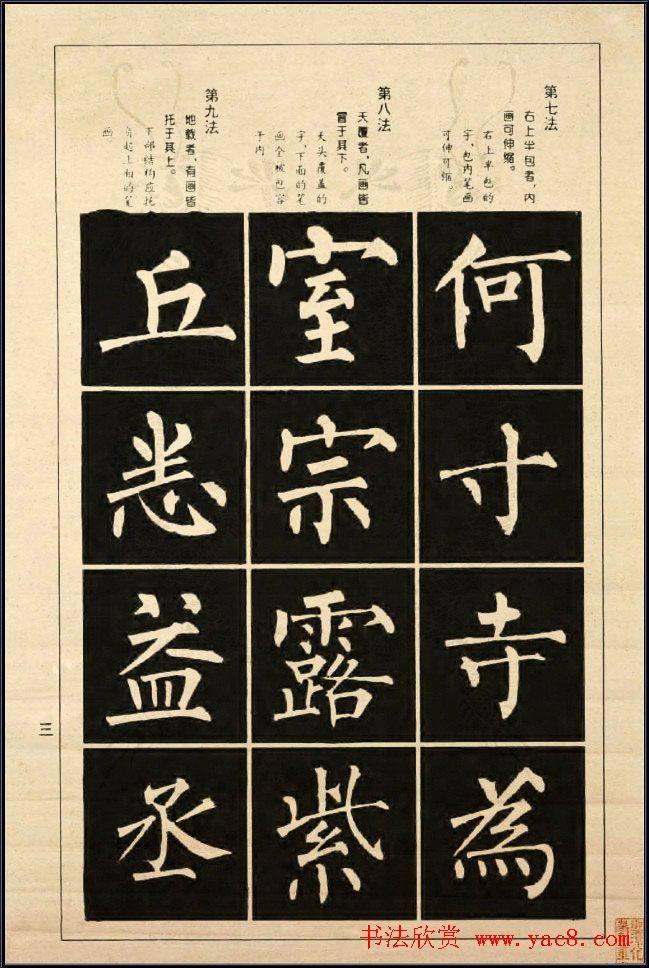 第七法
右上半包者，内
画可伸缩。
右上半包的
字，包内笔画
可伸可缩。
何寸寺為
第八法
天覆者，凡画皆
冒于其下。
天头覆盖的
字，下面的笔
画全被包容
于内
室宗露紫
第九法
地载者，有画皆
托于其上。
下部结构应托
负起上面的笔
画
丘益丞
三
书法欣赏 www.yac8.com